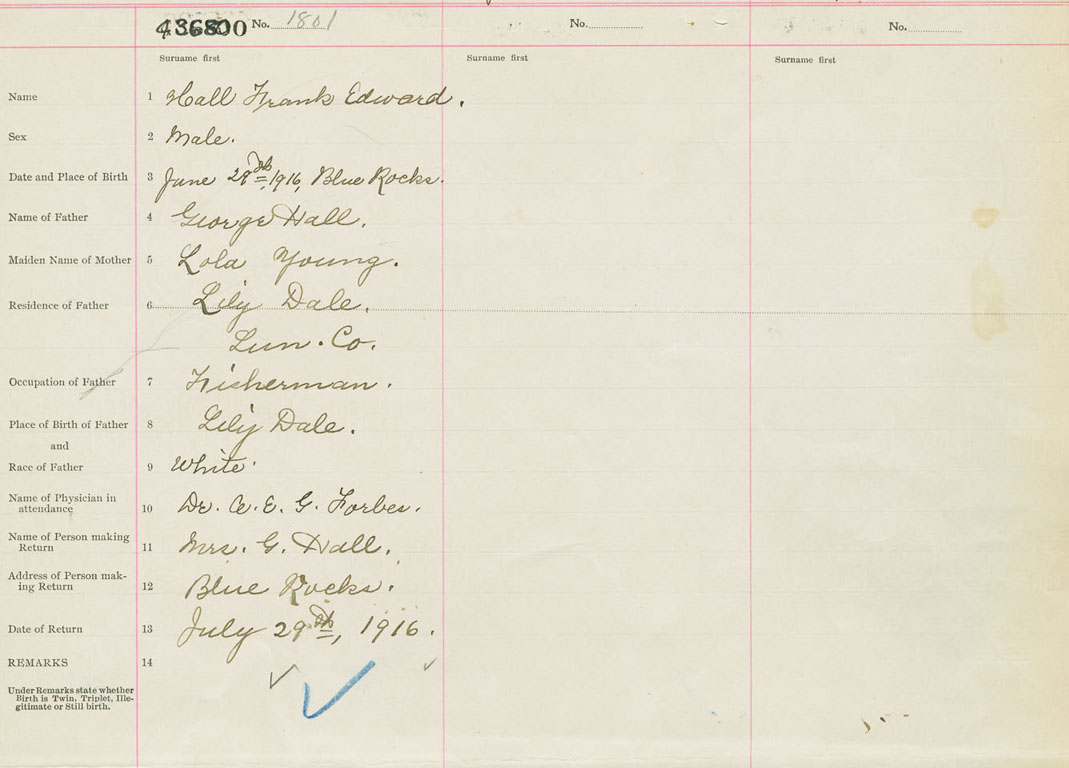 No. 1801 No. No.
Surname first Surname first Surname first
Name 1 Hall Frank Edward.
Sex 2 Male.
Date and Place of Birth 3 June 29th, 1916, Blue Rocks.
Name of Father 4 George Hall.
Maiden Name of Mother 5 Lola Young.
Residence of Father 6 Lily Dale.
Lun. Co.
Occupation of Father 7 Fisherman.
Place of Birth of Father 8 Lily Dale.
and
Race of Father 9 White.
Name of Physician in
attendance 10 Dr. A. E. G. Forbes.
Name of Person making
Return 11 Mrs. G. Hall.
Address of Person mak-
ing Return 12 Blue Rocks.
Date of Return 13 July 29th, 1916.
REMARKS 14
Under Remarks state whether
Birth is Twin, Triplet, Ille-
gitimate or Still birth.